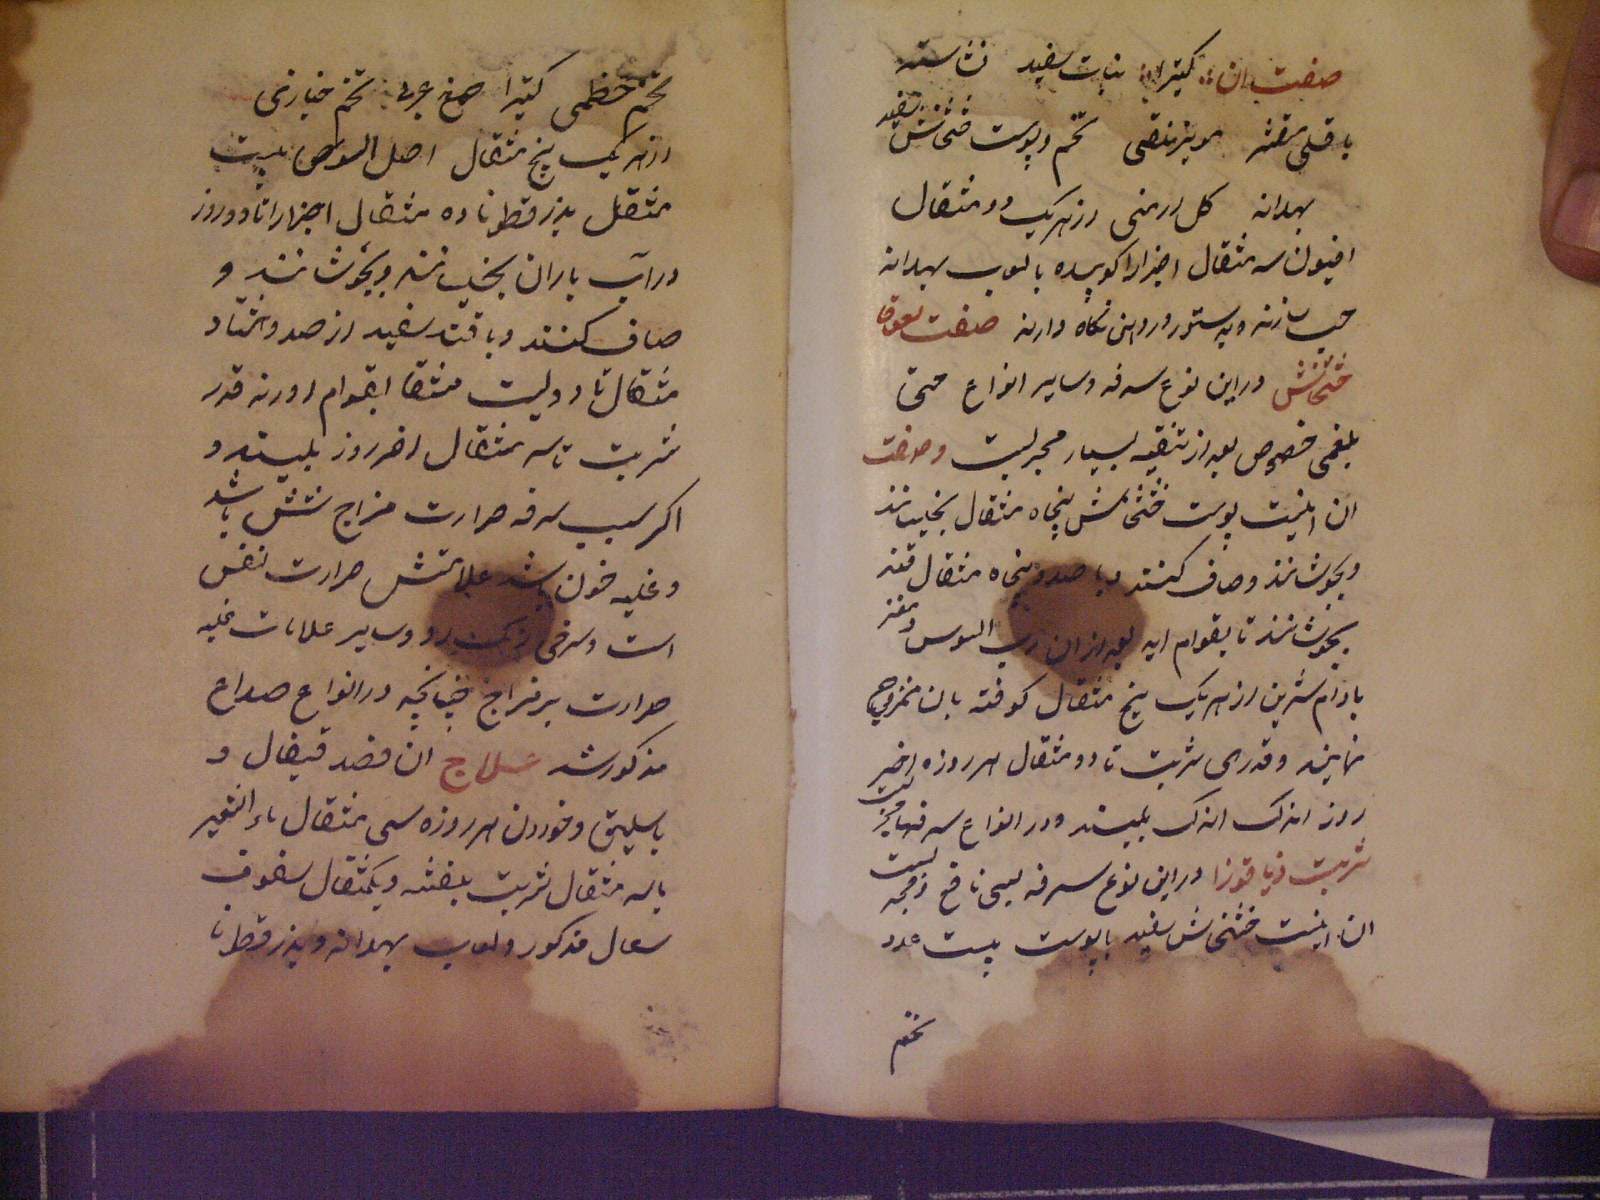 صفت ان کتیرا نبات سفید نشاسته
باقلی مقشر مویز منقی تخم و پوست خشخاش سفید
بهدانه کل ارمنی از هریک دو مثقال
افیون سه مثقال اجزا را کوبیده بالعاب بهدانه
حب سازند و بدستور در دهن نکاه دارند صفت لعوق
خشخاش در این نوع سرفه و سایر انواع حتی
بلغمی خصوص بعد از تنقیه بسیار مجربست و صفت
ان اینست پوست خشخاش پنجاه مثقال بخیسانند
و بجوشانند و صاف کنند و با صد و پنجاه مثقال قند
بجوشانند تا بقوام اید بعد از ان رب السوس و مغز
بادام شیرین از هریک پنج مثقال کوفته بان ممزوج
نمایند و قدری شربت تا دو مثقال هر روزه اخیر
روز اندک اندک بلیسند و در انواع سرفها مجربست
شربت دیاقوزا در این نوع سرفه بسی نافع و صفت
ان اینست خشخاش سفید باپوست بیست عدد
تخم
تخم خطمی کتیرا صمغ عربی تخم خبازی
از هریک پنج مثقال اصل السوس بیست
مثقال بذرقطونا ده مثقال اجزا را تا دو روز
در آب باران بخیسانند و بجوشانند و
صاف کنند و با قند سفید از صد و هشتاد
مثقال تا دویست مثقال بقوام اورند قدر
شربت تا سه مثقال اخر روز بلیسند و
اکر سبب سرفه حرارت مزاج شش باشد
و غلبه خون باشد علامتش حرارت نفس
است و سرخی رو و سایر علامات غلبه
حرارت بر مزاج چنانچه در انواع صداع
مذکور شد علاج ان فصد قیفال و
باسلیق و خوردن هر روزه سی مثقال ماءالشعیر
با سه مثقال شربت بنفشه و یکمثقال سفوف
سعال مذکور و لعاب بهدانه و بذرقطونا